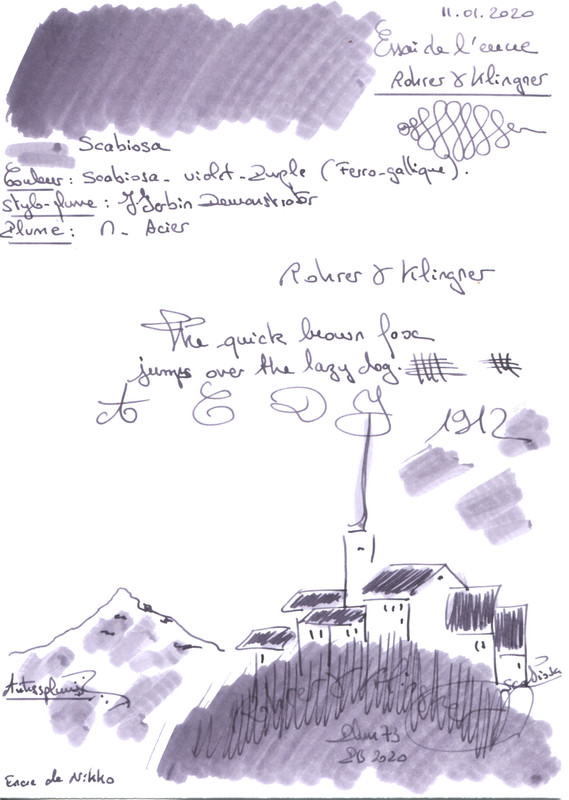 11.01.2020
Essai de l'encre
Rohrer & Klingner
Scabiosa
Couleur : Scabiosa - violet - Purple (Ferro-gallique).
Stylo-plume : J. Herbin Demonstrator
Plume : M - Acier
Rohrer & Klingner
The quick brown fox
jumps over the lazy dog.
A E D J
1912
Scabiosa
Rohrer & Klingner
Plum73
2020
Encre de Nikko